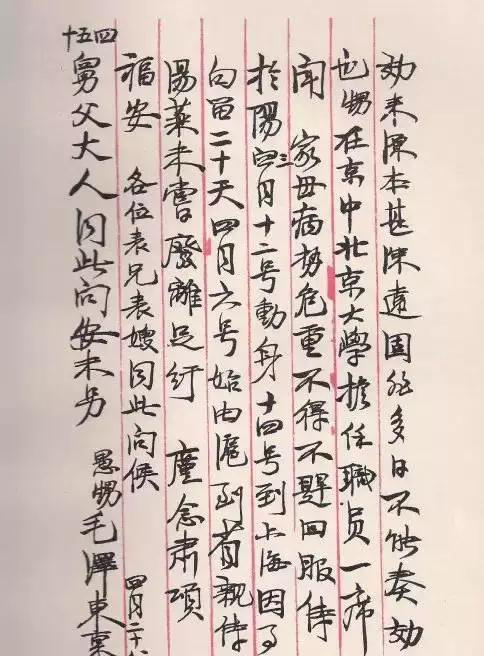 効来源本甚深遠固非多日不能奏効
也甥在京中北京大學擔任職員一席
聞 家母病勢危重不得不趕回服侍
於陽三月十二号動身十四号到上海因事
勾留二十天四月六号始由滬到省親侍
湯藥未嘗廢離足紓 廑念肅頌
福安 各位表兄表嫂同此問候 四月二十八
四五十
舅父大人同此問安未另 愚甥毛澤東稟